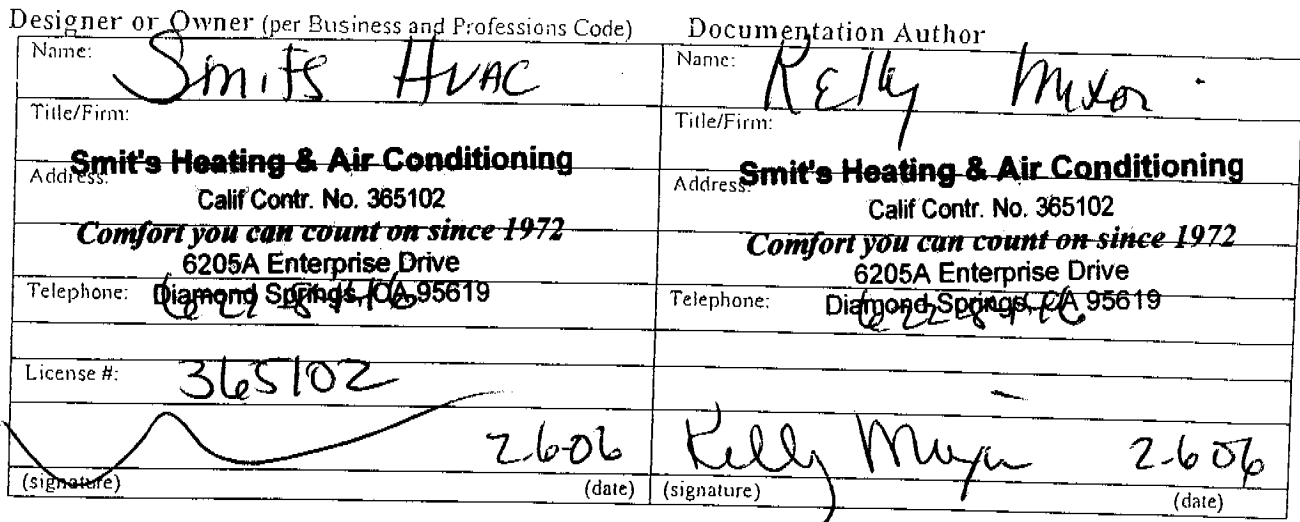 Designer or Owner (per Business and Professions Code)
Name: Smits HVAC
Title/Firm:
Smit's Heating & Air Conditioning
Address:
Calif Contr. No. 365102
Comfort you can count on since 1972
6205A Enterprise Drive
Telephone: Diamond Springs, CA 95619
License #: 365102
2-6-06
(signature) (date)
Documentation Author
Name: Kelly
Title/Firm:
Smit's Heating & Air Conditioning
Address:
Calif Contr. No. 365102
Comfort you can count on since 1972
6205A Enterprise Drive
Telephone: Diamond Springs, CA 95619
Kelly 2-6-06
(signature) (date)